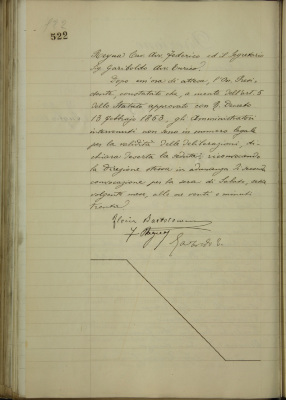 522
Regna Cav. Avv. Federico ed il Segretario
Sig. Gariboldi Avv. Enrico.
Dopo un'ora di attesa, l'On. Presi-
dente, constatato che, a mente dell'art. 5
dello Statuto approvato con R. Decreto
13 febbrajo 1863, gli Amministratori
intervenuti non sono in numero legale
per la validità delle deliberazioni, di-
chiara deserta la seduta, riconvocando
la Direzione stessa in adunanza di seconda
convocazione per la sera di Sabato,
volgente mese, alle ore venti e minuti
trenta.